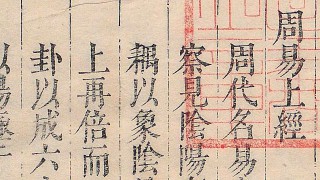 周易上經
周代名易
察見陰陽
耦以象陰
上再倍而
卦以成六
以易